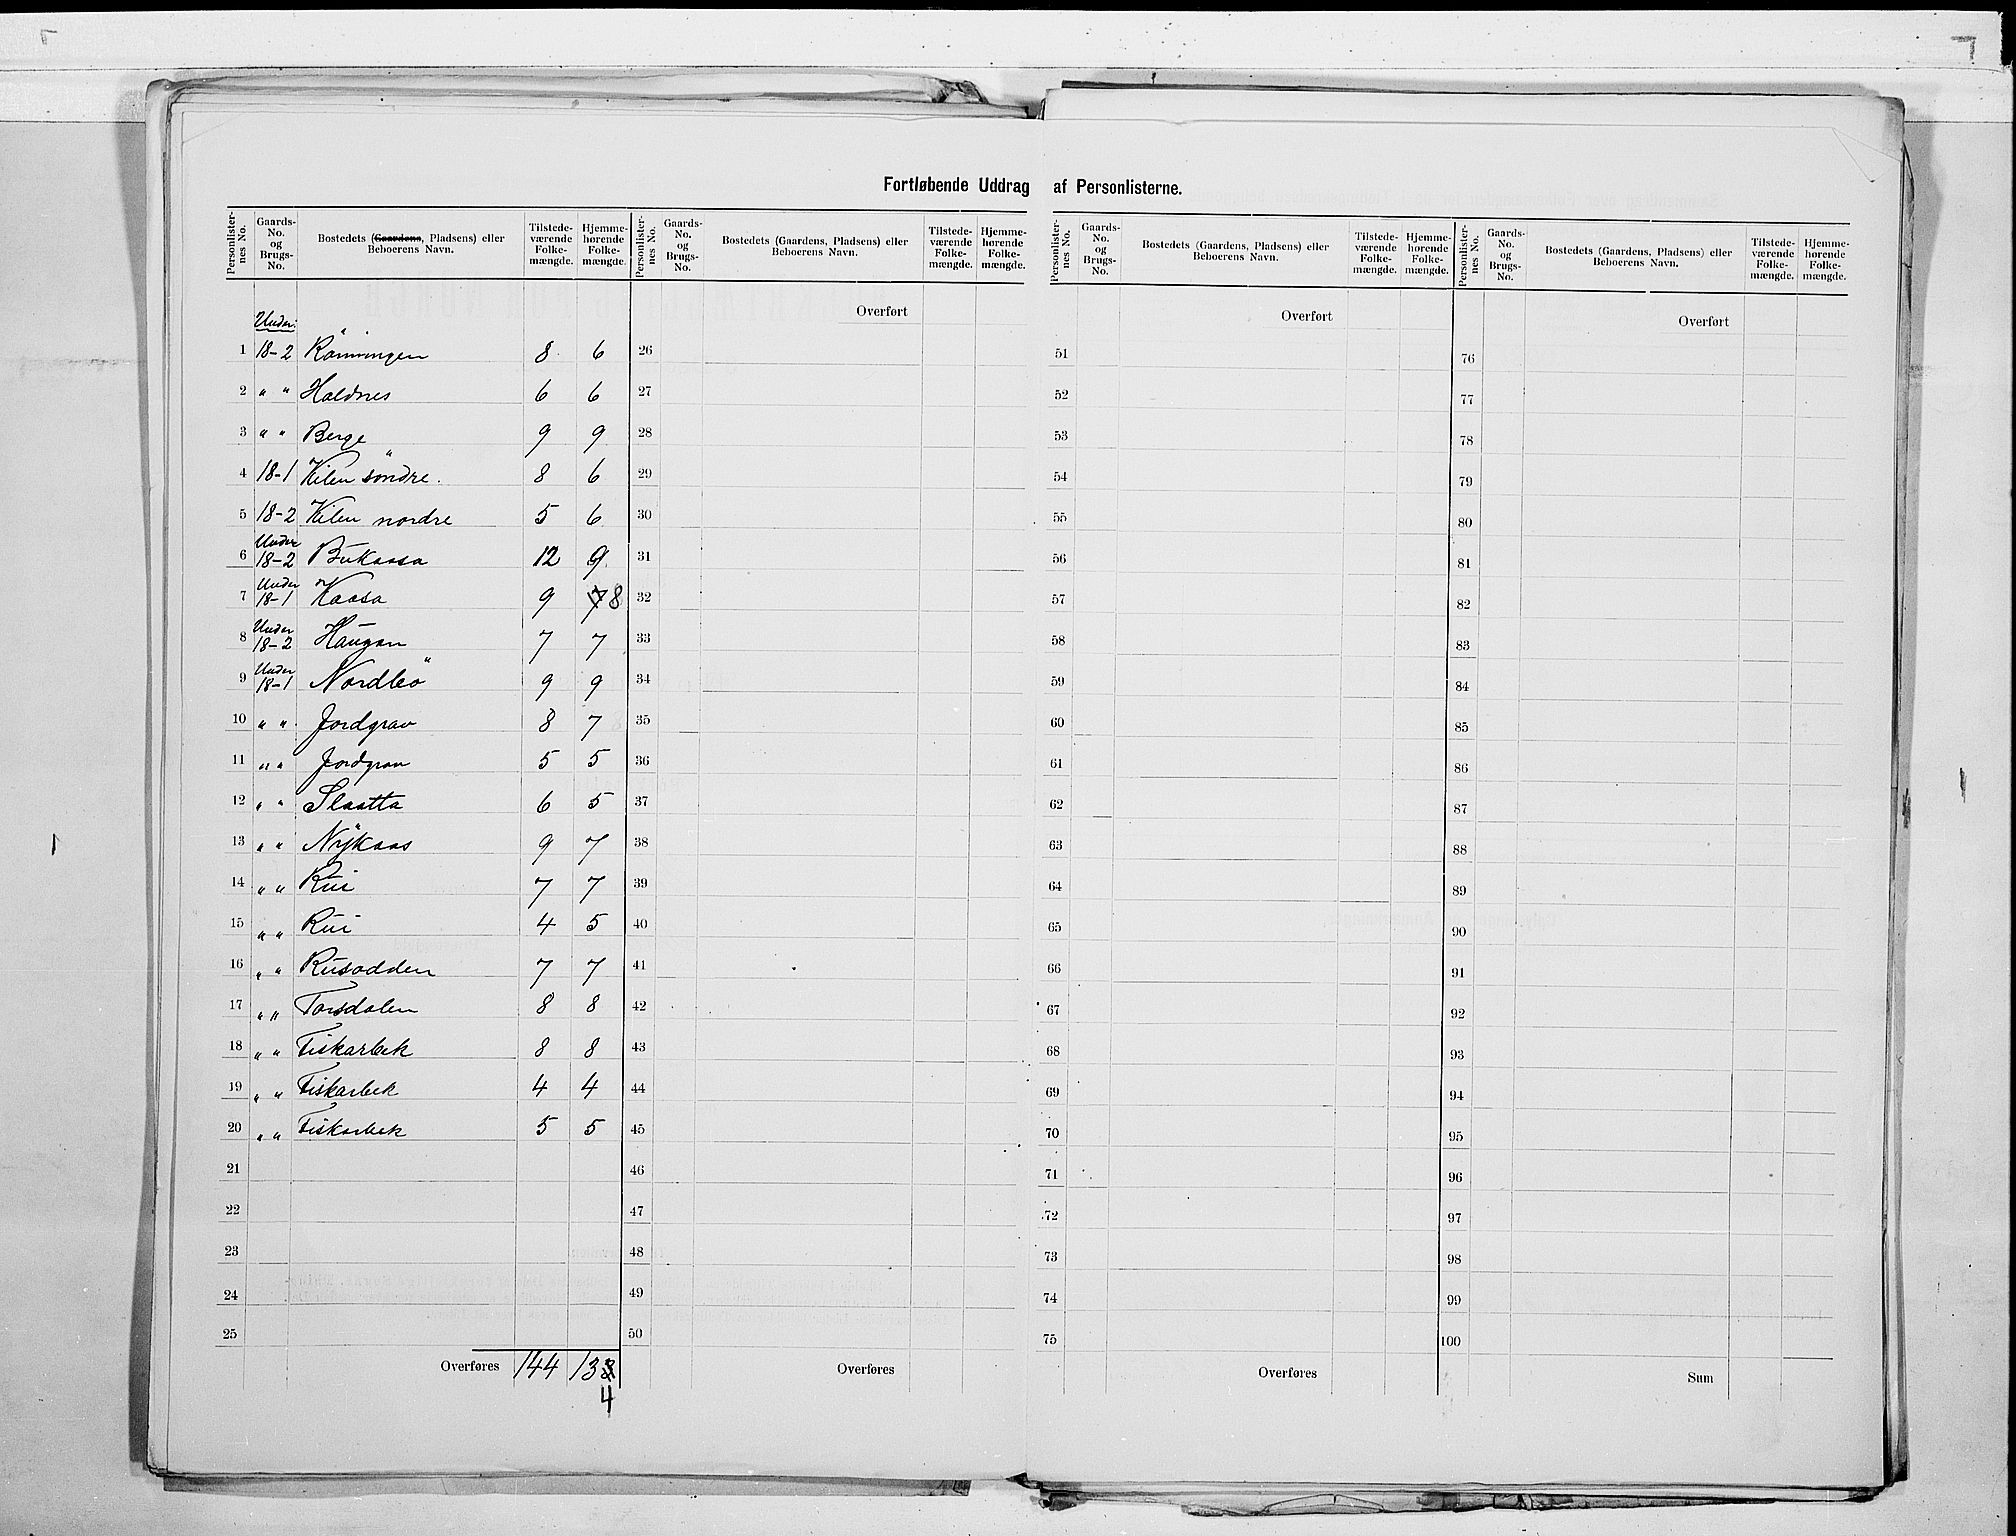 Fortløbende Uddrag af Personlisterne.
Personlisternes No. Gaards-No. og Brugs-No. Bostedets (Gaardens, Pladsens) eller Beboerens Navn. Tilstedeværende Folkemængde. Hjemmehørende Folkemængde.
Under:
1 18-2 Rönningen 8 6
2 " " Haldnes 6 6
3 " " Berge 9 9
4 18-1 Kilen söndre. 8 6
5 18-2 Kilen nordre 5 6
6 Under 18-2 Bukaasa 12 9
7 Under 18-1 Kaasa 9 7 8
8 Under 18-2 Haugan 7 7
9 Under 18-1 Nordbö 9 9
10 " " Jordgrav 8 7
11 " " Jordgrav 5 5
12 " " Slaatta 6 5
13 " " Nykaas 9 7
14 " " Rui 7 7
15 " " Rui 4 5
16 " " Rusodden 7 7
17 " " Torsdalen 8 8
18 " " Fiskarbek 8 8
19 " " Fiskarbek 4 4
20 " " Fiskarbek 5 5
21
22
23
24
25
Overføres 144 133
4
Personlisternes No. Gaards-No. og Brugs-No. Bostedets (Gaardens, Pladsens) eller Beboerens Navn. Tilstedeværende Folkemængde. Hjemmehørende Folkemængde.
Overført
26
27
28
29
30
31
32
33
34
35
36
37
38
39
40
41
42
43
44
45
46
47
48
49
50
Overføres
Personlisternes No. Gaards-No. og Brugs-No. Bostedets (Gaardens, Pladsens) eller Beboerens Navn. Tilstedeværende Folkemængde. Hjemmehørende Folkemængde.
Overført
51
52
53
54
55
56
57
58
59
60
61
62
63
64
65
66
67
68
69
70
71
72
73
74
75
Overføres
Personlisternes No. Gaards-No. og Brugs-No. Bostedets (Gaardens, Pladsens) eller Beboerens Navn. Tilstedeværende Folkemængde. Hjemmehørende Folkemængde.
Overført
76
77
78
79
80
81
82
83
84
85
86
87
88
89
90
91
92
93
94
95
96
97
98
99
100
Sum